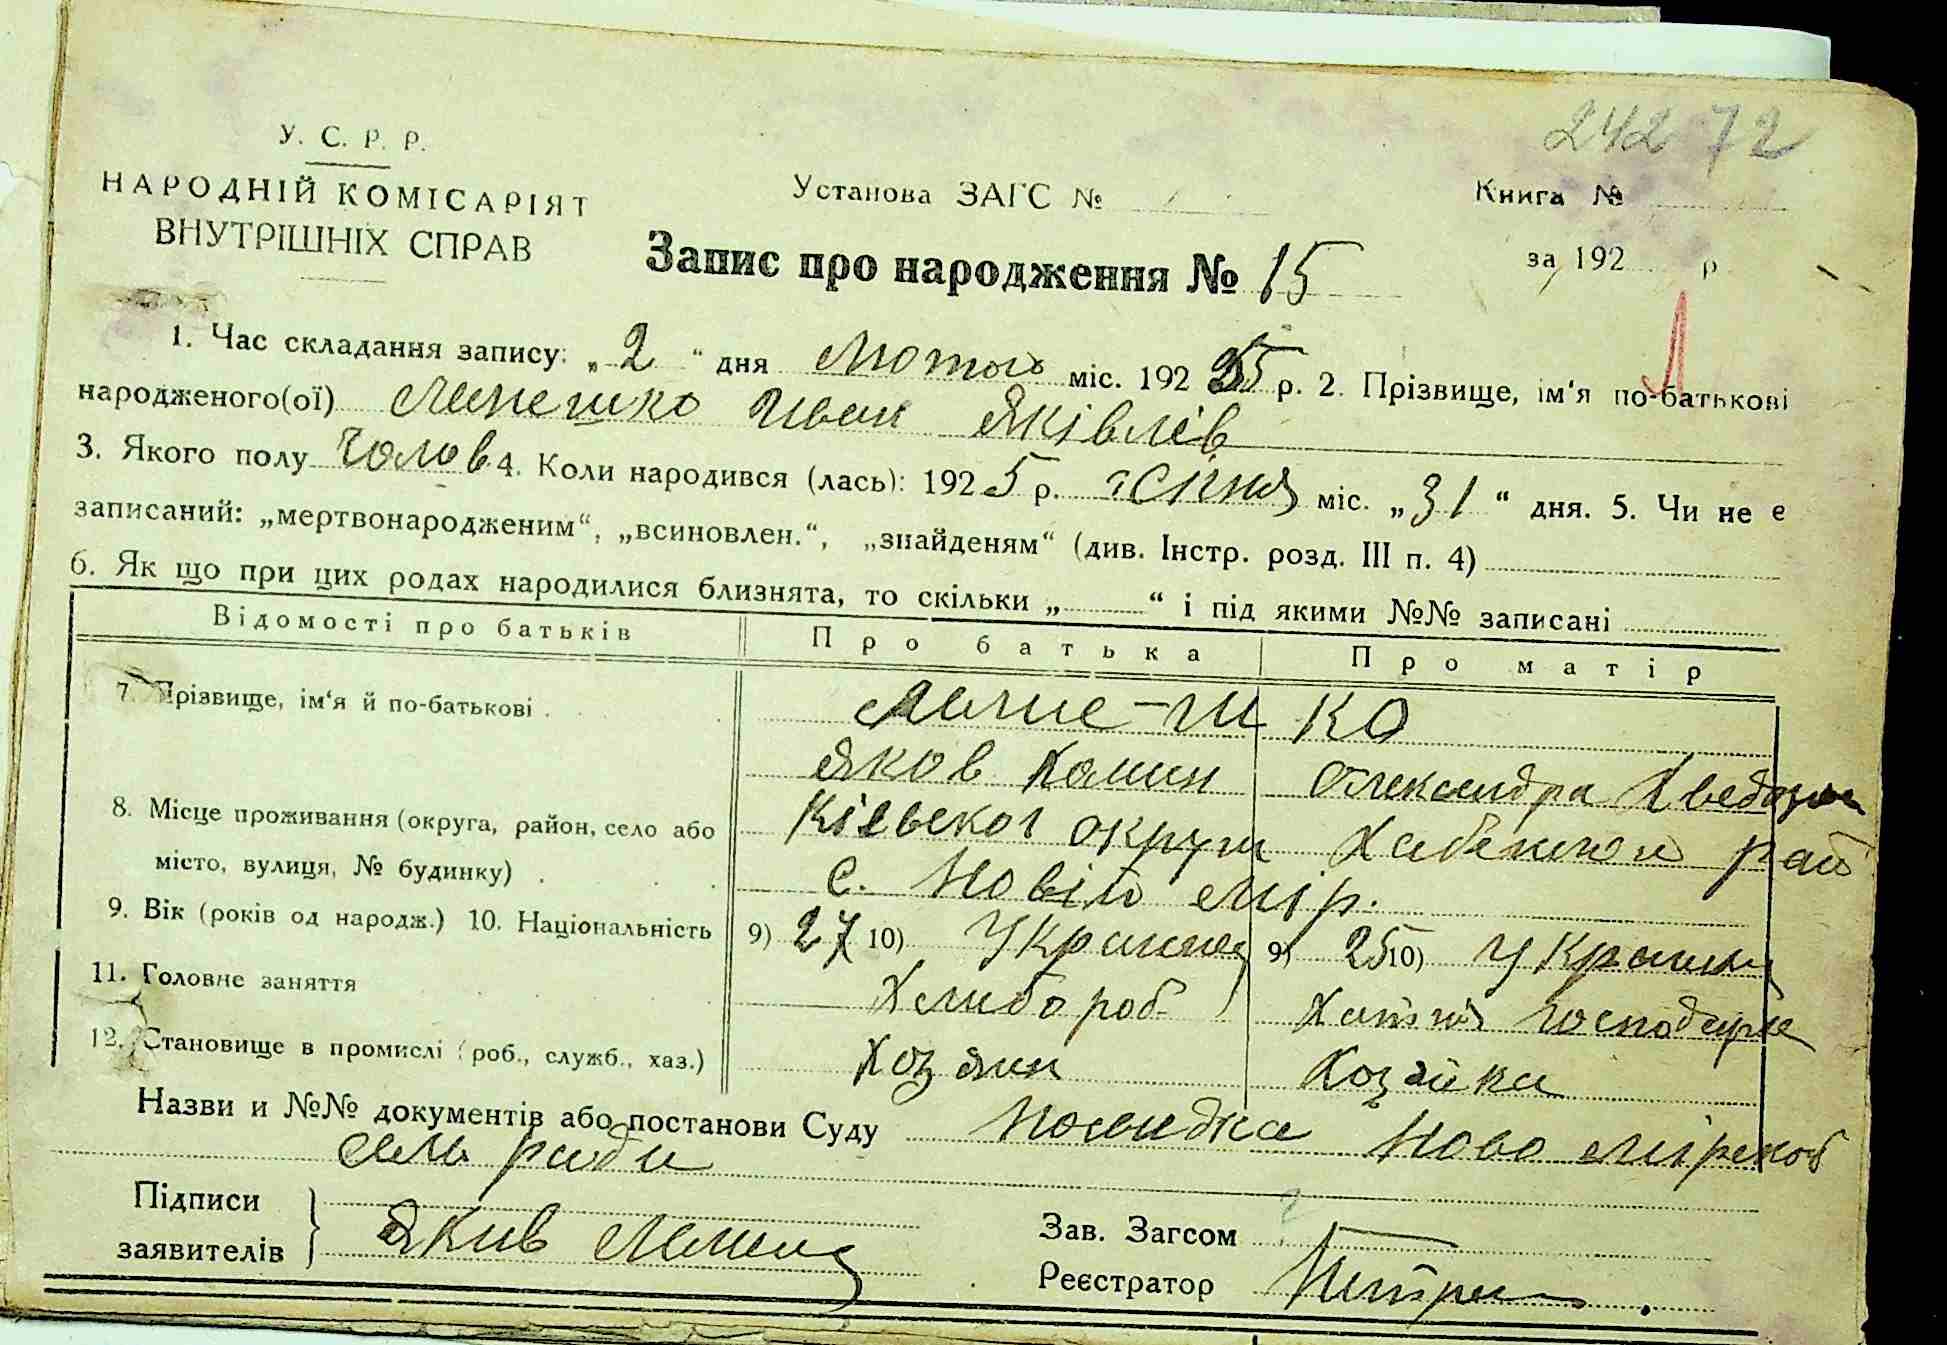 242 72
У. С. Р. Р.
НАРОДНІЙ КОМІСАРІЯТ
ВНУТРІШНІХ СПРАВ
Установа ЗАГС №
Книга №
за 192 р
Запис про народження № 15
1. Час складання запису: „ 2 “ дня Лютого міс. 192 5 р. 2. Прізвище, ім'я по-батькові
народженого(ої) Иван Яківлів
3. Якого полу Чолов 4. Коли народився (лась): 192 5 р. Січня міс. „ 31 “ дня. 5. Чи не є
записаний: „мертвонародженим“, „всиновлен.“, „знайденям“ (див. Інстр. розд. III п. 4)
6. Як що при цих родах народилися близнята, то скільки „ “ і під якими №№ записані
Відомості про батьків Про батька Про матір
7. Прізвище, ім'я й по-батькові
Яков Хомин Олександра
8. Місце проживання (округа, район, село або
місто, вулиця, № будинку)
Київської округи Хабенського рай
с. Новій Мір.
9. Вік (років од народж.) 10. Національність 9) 27 10) 9) 25 10)
11. Головне заняття Хлибороб Хатня господарка
12. Становище в промислі (роб., служб., хаз.) Хозяин Хозяйка
Назви и №№ документів або постанови Суду Посвидка Ново Мірской
Сель ради
Підписи
заявителів Якив
Зав. Загсом
Реєстратор